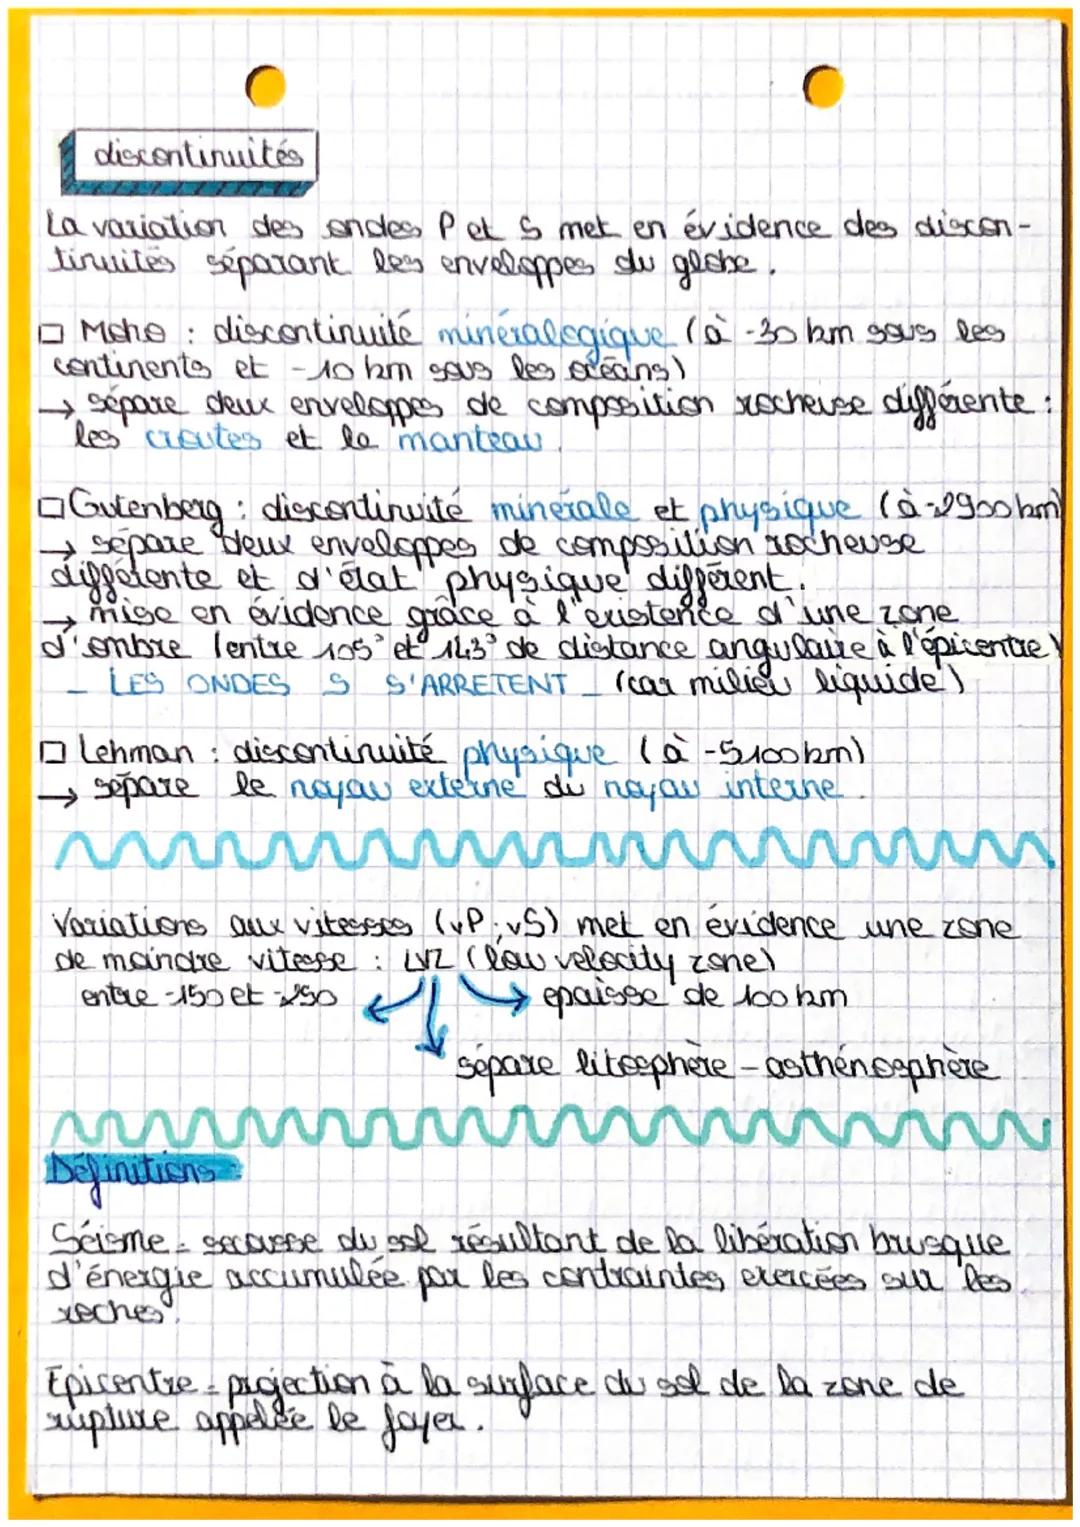 discontinuités
La variation des ondes P et S met en évidence des discon-
tinuités séparant les enveloppes du globe.
□ Moho : discontinuité minéralogique (à -30 km sous les
continents et -10 km sous les océans)
→ sépare deux enveloppes de composition rocheuse différente :
les croutes et la manteau.
□ Gutenberg : discontinuité minérale et physique (à -2900 km)
→ sépare deux enveloppes de composition rocheuse
différente et d'état physique différent.
→ mise en évidence grâce à l'existence d'une zone
d'ombre (entre 105° et 143° de distance angulaire à l'épicentre)
_ LES ONDES S S'ARRETENT _ (car milieu liquide)
□ Lehman : discontinuité physique (à -5100 km)
→ sépare le noyau externe du noyau interne.
Variations aux vitesses (vP; vS) met en évidence une zone
de moindre vitesse : LVZ (low velocity zone)
entre -150 et -250
epaisse de 100 km
sépare litosphère - asthénosphère
Définitions :
Séisme = secousse du sol résultant de la libération brusque
d'énergie accumulée par les contraintes exercées sur les
roches.
Epicentre = projection à la surface du sol de la zone de
rupture appelée le foyer.